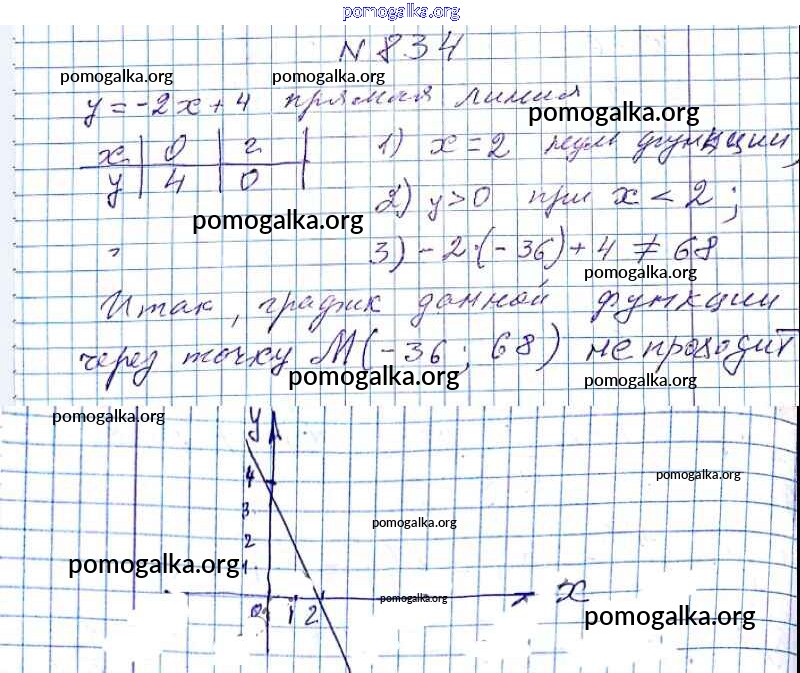 pomogalka.org
N 834
pomogalka.org pomogalka.org
y = -2x + 4 прямая линия
pomogalka.org
x | 0 | 2 | 1) x = 2 нуль функции,
y | 4 | 0 |
2) y > 0 при x < 2 ;
pomogalka.org
3) -2·(-36) + 4 ≠ 68
pomogalka.org
Итак, график данной функции
через точку M(-36; 68) не проходит
pomogalka.org pomogalka.org
pomogalka.org
y
4
pomogalka.org
3
pomogalka.org
2
pomogalka.org
1
x
pomogalka.org
0 1 2
pomogalka.org